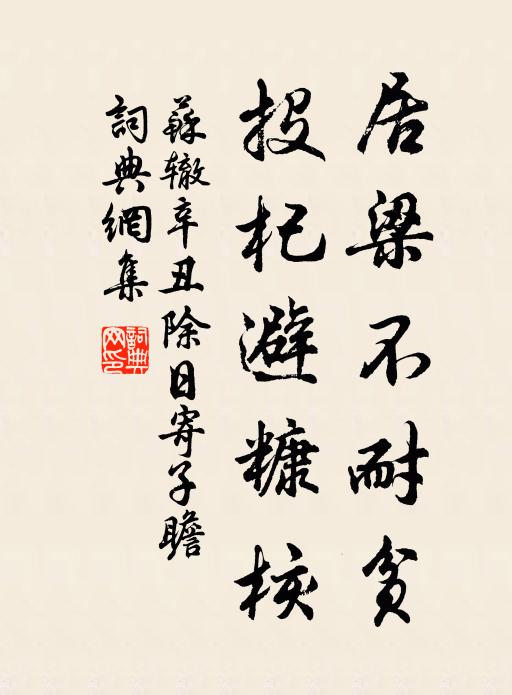 居梁不耐貧
投杞避糠核
蘇辙辛丑除日寄子瞻
詞典網集
詞典網印